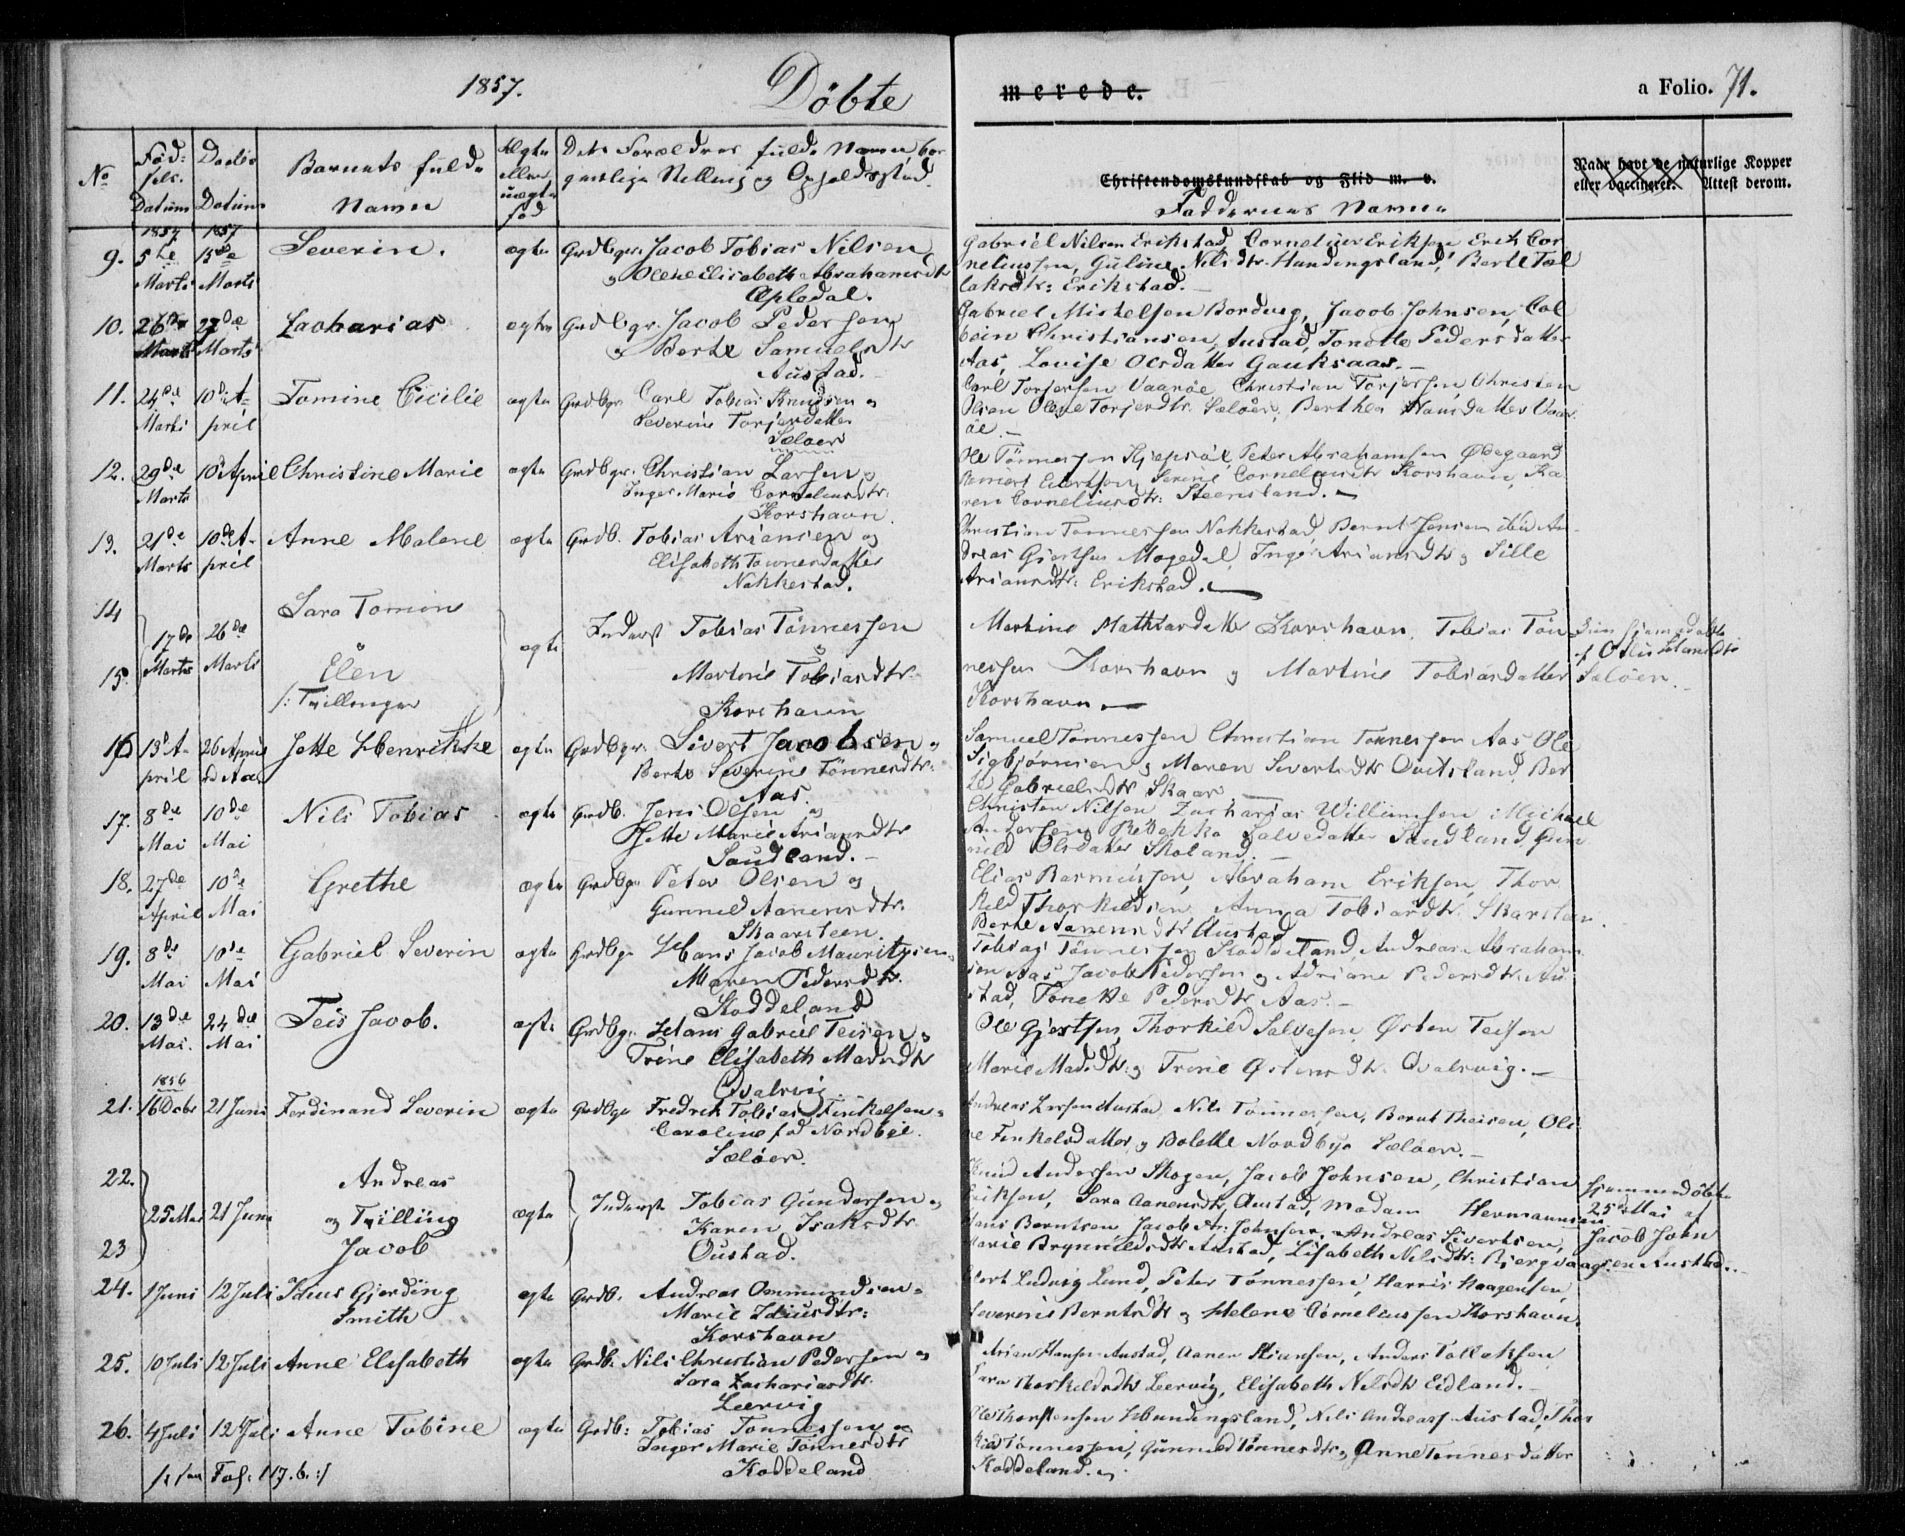 1857.
Döbte
merede.
a Folio. 71.
No
Fød-
sels.
Datum
Daabs
Datum
Barnets fulde
Navn
Ægte
eller
uægte
fød
Dets Forældres fulde Navn bor
gerlige Stilling og Opholdssted.
Christendomskundskab og Flid m. v.
Faddernes Navne
Naar havt de naturlige Kopper
eller vaccineret. Attest derom.
1857 1857
9. 5te Marts 15de Marts Severin. ægte Grdbgr. Jacob Tobias Nilsen
og Olene Elisabeth Abrahamsdtr
Apledal.
Gabriel Nilsen Erikstad, Cornelius Eriksen Erik Cor
neliussen, Guline Nilsdtr. Hundingsland, Berte Tal
laksdtr: Erikstad.
10. 26de Marts 27de Marts Zacharias ægte Grdbgr. Jacob Pedersen
og Berte Samuelsdtr
Austad.
Gabriel Mickelsen Bordvig, Jacob Johnsen, Col
bein Christiansen Austad, Tonette Pedersdatter
Aas, Lovise Olsdatter Gauksaas.
11. 24de Marts 10de April Tomine Cicilie ægte Grdbgr Carl Tobias Knudsen og
Severine Torjersdatter
Seløer
Carl Torjersen Vaarøe, Christian Torjersen, Christen
Olsen Olene Torjersdtr. Seløer, Berthea Hansdatter Vaar
øe.
12. 29de Marts 10de April Christine Marie ægte Grdbgr. Christian Larsen og
Inger Marie Corneliusdtr.
Korshavn.
Ole Tönnessen Peter Abrahamsen Ødegaard
Serine Corneliusdtr Korshavn, Ka
ren Corneliusdtr: Steensland.
13. 21de Marts 10de April Anne Malene ægte Grdb. Tobias Ariansen og
Elisabeth Tönnesdatter
Nakkestad.
Christian Tønnessen Nakkestad, Bernt Jensen ibid An
dreas Gjertsen Mogedal, Inger Ariansdtr og Sille
Ariansdtr: Erikstad.
14
15. 17de Marts 26de Marts Sara Tomine
Elen
/: Tvillinger
ægte Inderst Tobias Tönnessen
og
Martine Tobiasdtr.
Korshavn
Martine Mathiasdatter Korshavn, Tobias Tön
nessen Korshavn og Martine Tobiasdatter
Korshavn
Seløen.
16 13de April 26 April Jette Henrikke ægte Grdbgr. Sivert Jacobsen og
Berte Severine Tönnesdtr.
Aas.
Samuel Tønnessen Christian Tønnessen Aas Ole
Sigbjørnsen og Maren Sivertsdtr Qvitsland, Ber
te Gabrielsdtr Skaar
17. 8de Mai 10de Mai Nils Tobias ægte Grdb. Jens Olsen og
Jette Marie Ariansdtr
Sandland.
Christen Nilsen Zacharias Williamsen Michael
Andersen Rebekka Salvedatter Sandland, Gun
nild Olsdatter Skoland.
18. 27de April 10de Mai Grethe ægte Grdbgr Peter Olsen og
Gunnild Aanensdtr.
Skaarsteen.
Elias Rasmussen, Abraham Eriksen, Thor
kild Thorkildsen Anna Tobiasdtr Skarsten
Berte Aanensdtr Austad
19. 8de Mai 10de Mai Gabriel Severin ægte Grdbgr Hans Jacob Mauritzsen
Maren Pedersdtr.
Koddeland
Tobias Tønnessen Koddeland, Andreas Abraham
sen Aas Jacob Pedersen og Adriane Pedersdtr. Au
stad, Tonette Pedersdtr Aas.
20. 13de Mai. 24de Mai Teis Jacob. ægte Grdbgr Hans Gabriel Teisen og
Trine Elisabeth Madsdtr
Qvalsvig
Ole Gjertsen Thorkild Salvesen, Østen Teisen
Marie Madsdtr. og Trine Østensdtr. Qvalsvig.
1856
21. 16 Decbr 21 Juni Ferdinand Severin ægte Grdbgr Fredrik Tobias Finkelsen
Caroline fød Nordbye.
Seløer.
Andreas Larsen Austad Nils Tønnessen, Bernt Theisen, Oli
ne Finkelsdatter og Bolette Nordbye Seløer.
22.
23 25 Mai 21 Juni Andreas
og Tvilling
Jacob
ægte Inderst Tobias Gundersen og
Karen Isaksdtr
Oustad.
Knud Andersen Skogen, Jacob Johnsen, Christian
Eriksen, Sara Aanensdtr, Austad, Madam Hermannsen
Hans Berntsen Jacob A. Johnsen, Andreas Sivertsen,
Marie Brynnildsdtr Austad, Lisabeth Nilsdtr. Bjergvaag
Hjemmedøbte
25de Mai af
Jacob John
sen Austad.
24. 1 Juni 12 Juli Idius Gjerding
Smith
ægte Grdb. Andreas Ommundsen
Marie Idiusdtr:
Korshavn
Ludvig Lund, Peter Tönnessen, Harris Haagensen,
Severine Berntsdtr og Helene Corneliussen Korshavn
25. 10 Juli 12 Juli Anne Elisabeth ægte Grdb. Nils Christian Pedersen og
Sara Zachariasdtr.
Leervig
Arian Hansen Austad, Aanen Stiansen, Anders Tollaksen,
Sara Thorkildsdtr Leervig, Elisabeth Nilsdtr Eidland.
26. 4 Juli 12 Juli Anne Tobine ægte Grdb: Tobias Tønnessen og
Inger Marie Tönnesdtr
Koddeland
Ole Thorstensen Hundingsland, Nils Andreas Austad, Thor
kild Tönnessen, Gunnild Tønnesdtr og Anne Tønnesdatter
Koddeland.
Fol: 117.b. :/